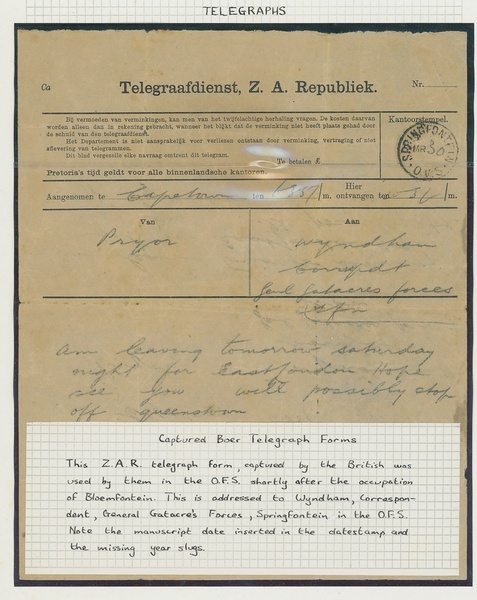 TELEGRAPHS
Ca
Telegraafdienst, Z. A. Republiek.
Nr.
Bij vermoeden van verminkingen, kan men van het twijfelachtige herhaling vragen. De kosten daarvan
worden alleen dan in rekening gebracht, wanneer het blijkt dat de verminking niet heeft plaats gehad door
de schuld van den telegraafdienst.
Het Departement is niet aansprakelijk voor verliezen ontstaan door verminking, vertraging of niet
aflevering van telegrammen.
Dit blad vergezelle elke navraag omtrent dit telegram.
Te betalen £
Kantoorstempel.
SPRINGFONTEIN
MR 30
O.V.S.
Pretoria's tijd geldt voor alle binnenlandsche kantoren.
Aangenomen te Capetown ten /m.
Hier
ontvangen ten /m.
Van
Aan
Pryor
Wyndham
Corrspdt
Genl Gatacres forces
Sfn
Am leaving tomorrow saturday
night for Eastlondon Hope
see you will possibly stop
off queenstown
Captured Boer Telegraph Forms
This Z.A.R. telegraph form, captured by the British was
used by them in the O.F.S. shortly after the occupation
of Bloemfontein. This is addressed to Wyndham, Correspon-
dent, General Gatacre's Forces, Springfontein in the O.F.S.
Note the manuscript date inserted in the datestamp and
the missing year slugs.